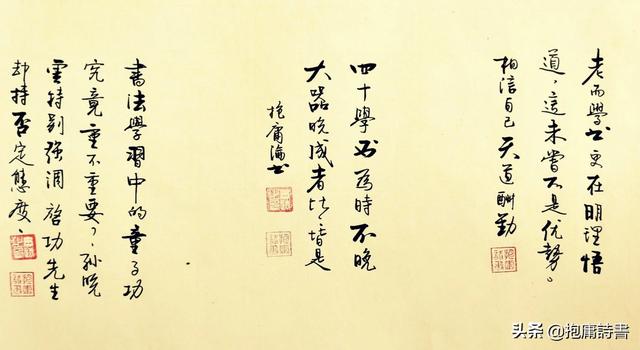 老而學书更在明理悟
道，這未嘗不是优勢。
相信自己天道酬勤
四十學书為時不晚
大器晚成者比々皆是
抱庸 书
書法學習中的童子功
究竟重不重要？孫晓
雲特别强调啓功先生
却持否定態度、
头条 @抱庸詩書